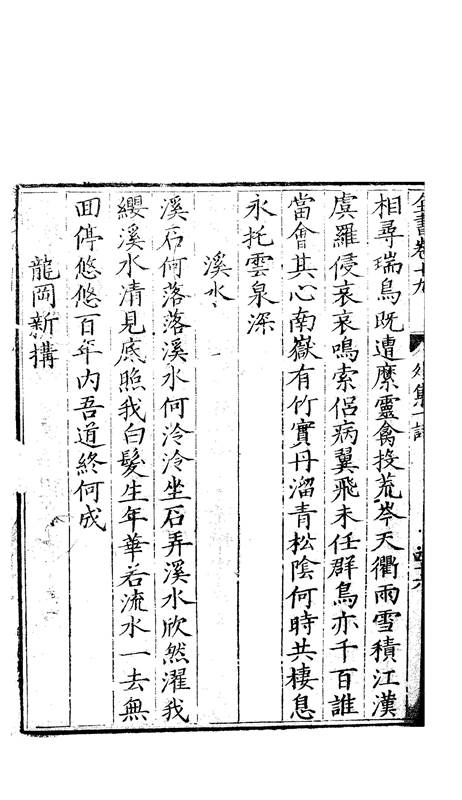 全書卷十九　外集一 詩
相尋瑞鳥既遭縻靈禽投荒岑天衢雨雪積江漢
虞羅侵哀哀鳴索侶病翼飛未任群鳥亦千百誰
當會其心南嶽有竹實丹溜青松陰何時共棲息
永托雲泉深
溪水
溪石何落落溪水何泠泠坐石弄溪水欣然濯我
纓溪水清見底照我白髮生年華若流水一去無
回停悠悠百年內吾道終何成
龍岡新搆